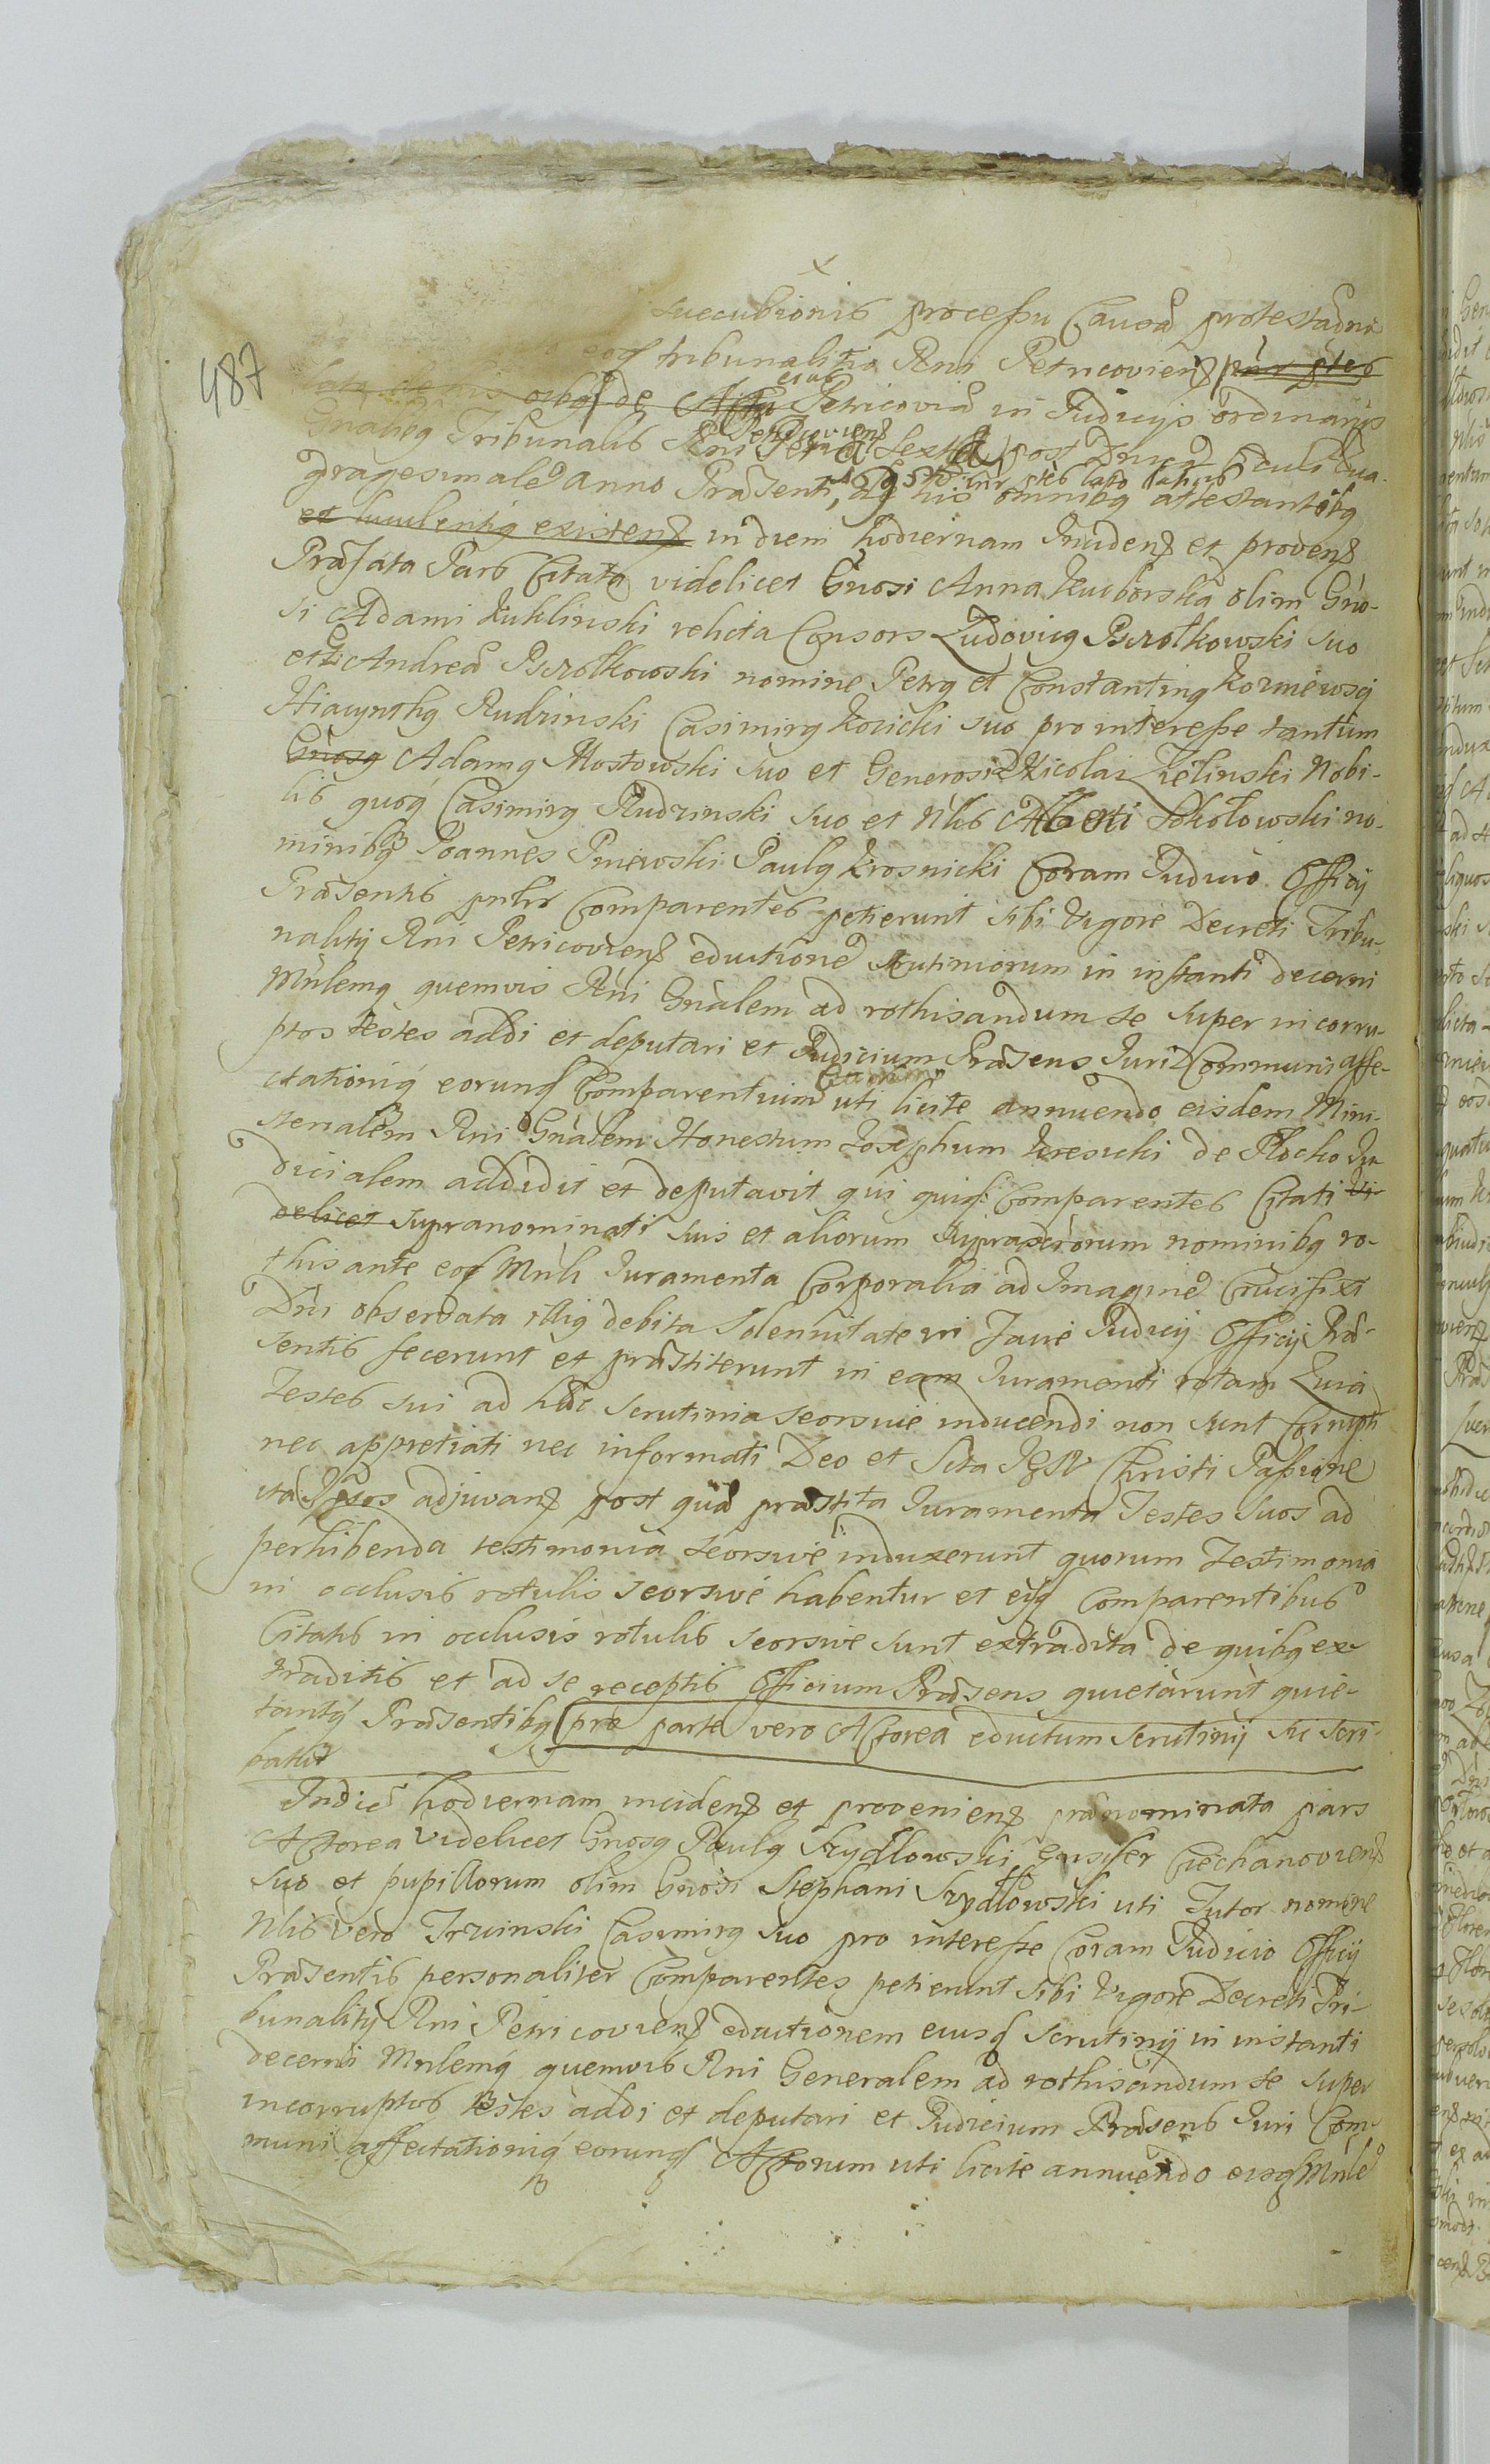 succubionis processu Causa protestadni
487
eoq tribunalitio Rni Petricovien
orbq de Actu Petricovia in Judicijs ordinarijs
eius
Gnalibq Tribunalis Rni Feria Sexta post Dnicā Oculi Qua-
Petricovien
dragesimalē Anno Præsenti, de his omnibq attestantibq
et luculentiq existen in diem hodiernam Inciden et proven
Præfata Pars Citata videlicet Gnosi Anna Kucborska olim Gno-
si Adami Kuklinski relicta Consors Ludovicq Pszołkowski suo
et Gsi Andreæ Pszołkowski nomine Petrq et Constantinq Kozmiewscy
Hiacynthq Rudzinski Casimirq Kosicki suo pro interesse tantum
Gnosq Adamq Mostowski suo et Generosi Nicolai Zielinski Nobi-
lis quoq Casimirq Rudzinski suo et Nlis Alberti Sokołowski no-
minibq Joannes Pniewski Paulq Krosnicki Coram Judicio Officij
Præsentis pnlr Comparentes petierunt sibi Vigore Decreti Tribu-
nalitij Rni Petricovien eductionē scrutiniorum in instanti decerni
Mnlemq quemvis Rni Gnalem ad rothisandum se super incorru-
ptos testes addi et deputari et Judicium Præsens Juri Communi affe-
ctationiq eorunq Comparentium uti licite annuendo eisdem Mini-
sterialem Rni Gnalem Honestum Josephum Kresicki de Płocko Ju-
dicialem addidit et deputavit qui quiq Comparentes Citati vi-
delicet supranominati suis et aliorum suprascriptorum nominibq ro-
thisante eoq Mnli Juramenta Corporalia ad Imaginē Crucifixi
Dni observata illiq debita Solennitate in facie Judicij Officij Præ-
sentis fecerunt et præstiterunt in eam Juramenti rotam Quia
Testes sui ad hæc scrutinia seorsive inducendi non sunt Corrupti
nec appretiati nec informati Deo et Scta JESU Christi Passione
ita Ipsos adjuvan post quæ præstita Juramenta Testes suos ad
perhibenda testimonia seorsive induxerunt quorum Testimonia
in occlusis rotulis seorsive habentur et eijsq Comparentibus
Citatis in occlusis rotulis seorsive sunt extradita de quibq ex-
traditis et ad se receptis Officium Præsens quietarunt quie-
tantq Præsentibq pro parte vero Actorea eductum scrutinij sic scri-
batur
In diē hodiernam inciden et provenien prænominata pars
Actorea Videlicet Gnosq Paulq Szydłowski Ensifer Ciechanovien
suo et pupillorum olim Gnosi Stephani Szydłowski uti Tutor nomine
Nlis vero Trzcinski Casimirq suo pro interesse Coram Judicio Officij
Præsentis personaliter Comparentes petierunt sibi Vigore Decreti Tri-
bunalitij Rni Petricovien eductionem eiusq Scrutinij in instanti
decerni Mnlemq quemvis Rni Generalem ad rothisandum se super
incorruptos testes addi et deputari et Judicium Præsens Juri Com-
muni affectationiq eorunq Actorum uti licite annuendo eisq Mnlē